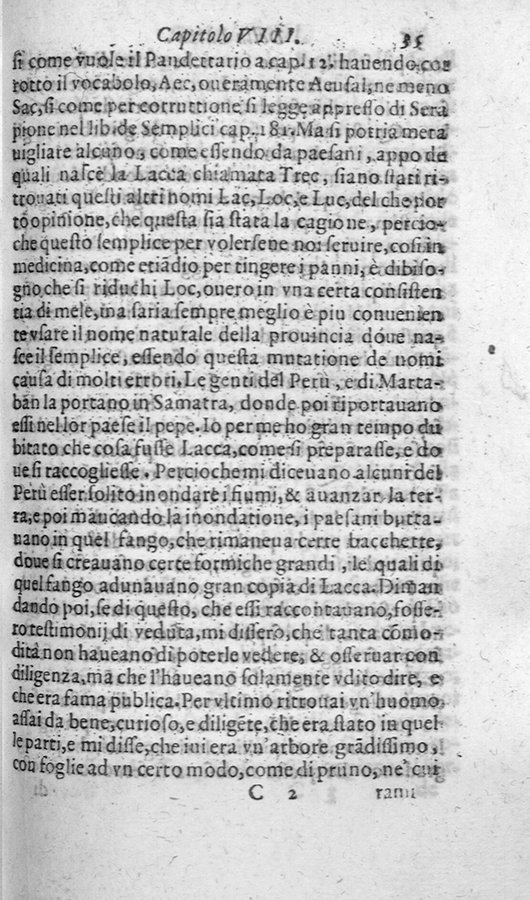 Capitolo VIII. 35
si come vuole il Pandettario a cap. 12. hauendo cor
rotto il vocabolo, Aec, oueramente Aeusal, ne meno
Sac, si come per corruttione si legge appresso di Sera
pione nel lib. de Semplici cap. 181. Ma si potria mera
uigliare alcuno, come essendo da paesani, appo de
quali nasce la Lacca chiamata Trec, siano stati ri-
trouati questi altri nomi Lac, Loc, e Luc, del che por
to opinione, che questa sia stata la cagione, percio-
che questo semplice per volersene noi seruire, cosi in
medicina, come etiãdio per tingere i panni, è dibiso-
gno che si riduchi Loc, ouero in vna certa consisten
tia di mele, ma saria sempre meglio e piu conuenien
te vsare il nome naturale della prouincia doue na-
sce il semplice, essendo questa mutatione de nomi
causa di molti errori. Le genti del Perù, e di Marta-
bàn la portano in Samatra, donde poi riportauano
essi nel lor paese il pepe. Io per me ho gran tempo du
bitato che cosa fusse Lacca, come si preparasse, e do
ue si raccogliesse. Percioche mi diceuano alcuni del
Perù esser solito inondare i fiumi, & auanzar la ter-
ra, e poi mancando la inondatione, i paesani butta-
uano in quel fango, che rimaneua certe bacchette,
doue si creauano certe formiche grandi, le quali di
quel fango adunauano gran copia di Lacca. Diman
dando poi, se di questo, che essi raccontauano, fosse-
ro testimonij di veduta, mi dissero, che tanta cõmo-
dità non haueano di poterle vedere, & osseruar con
diligenza, ma che l'haueano solamente vdito dire, e
che era fama publica. Per vltimo ritrouai vn'huomo
assai da bene, curioso, e diligẽte, che era stato in quel
le parti, e mi disse, che iui era vn'arbore grãdissimo,
con foglie ad vn certo modo, come di pruno, ne' cui
C 2 rami